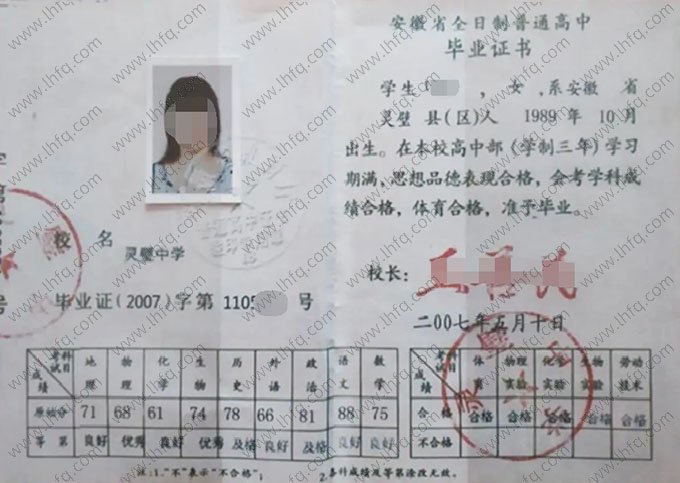 安徽省全日制普通高中
毕业证书
学生 ，女，系安徽 省
灵璧 县(区)人 1989 年 10 月
出生。在本校高中部(学制三年)学习
期满，思想品德表现合格，会考学科成
绩合格，体育合格，准于毕业。
校长：
二00七年五月十日
校 名 灵璧中学
毕业证(2007)字第 110 号
考试科目 成绩 地理 物理 化学 生物 历史 外语 政治 语文 数学
原始分 71 68 61 74 78 66 81 88 75
等 第 良好 优秀 良好 优秀 及格 良好 及格 良好 良好
考查科目 成绩 体育 物理实验 化学实验 生物实验 劳动技术
合 格 合格 合格 合格 合格 合格
不合格
注:1."不"表示"不合格"； 2.各科成绩及等第涂改无效。
www.lhfq.com